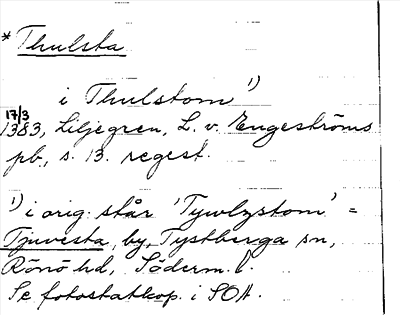 *Thulsta
i Thulstom 1)
17/3
1383, Liljegren, L. v. Engeströms
pb, s. 13. regest.
1) i orig. står 'Tywlzstom' =
Tjuvesta, by, Tystberga sn,
Rönö hd, Söderm. l.
Se fotostatkop. i SOA.